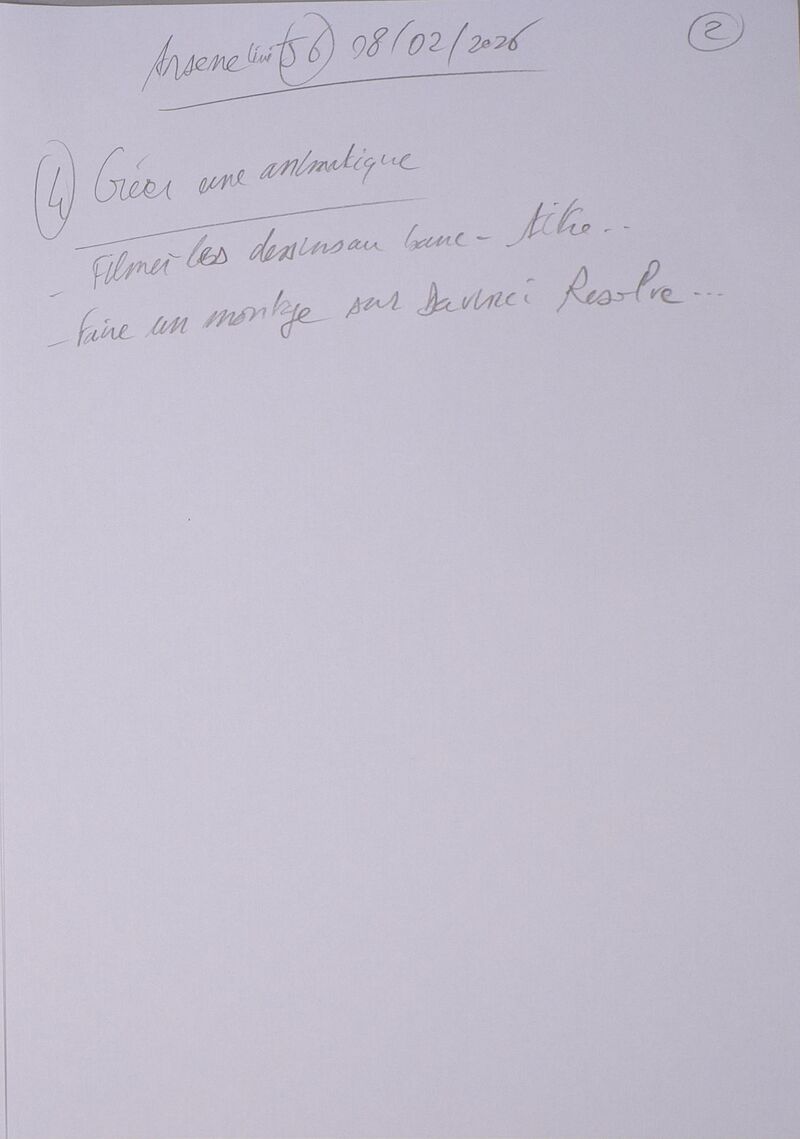 Arsene 56 08/02/2026
2
4 Créer une animatique
- Filmer les dessins au banc-titre...
- Faire un montage sur Davinci Resolve...